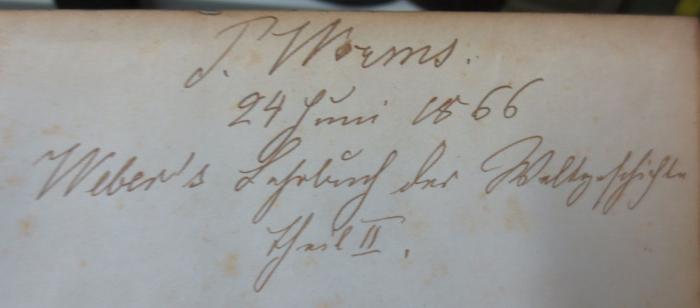 P. Worms.
24 Juni 1866
Weber's Lehrbuch der Weltgeschichte
Theil II.